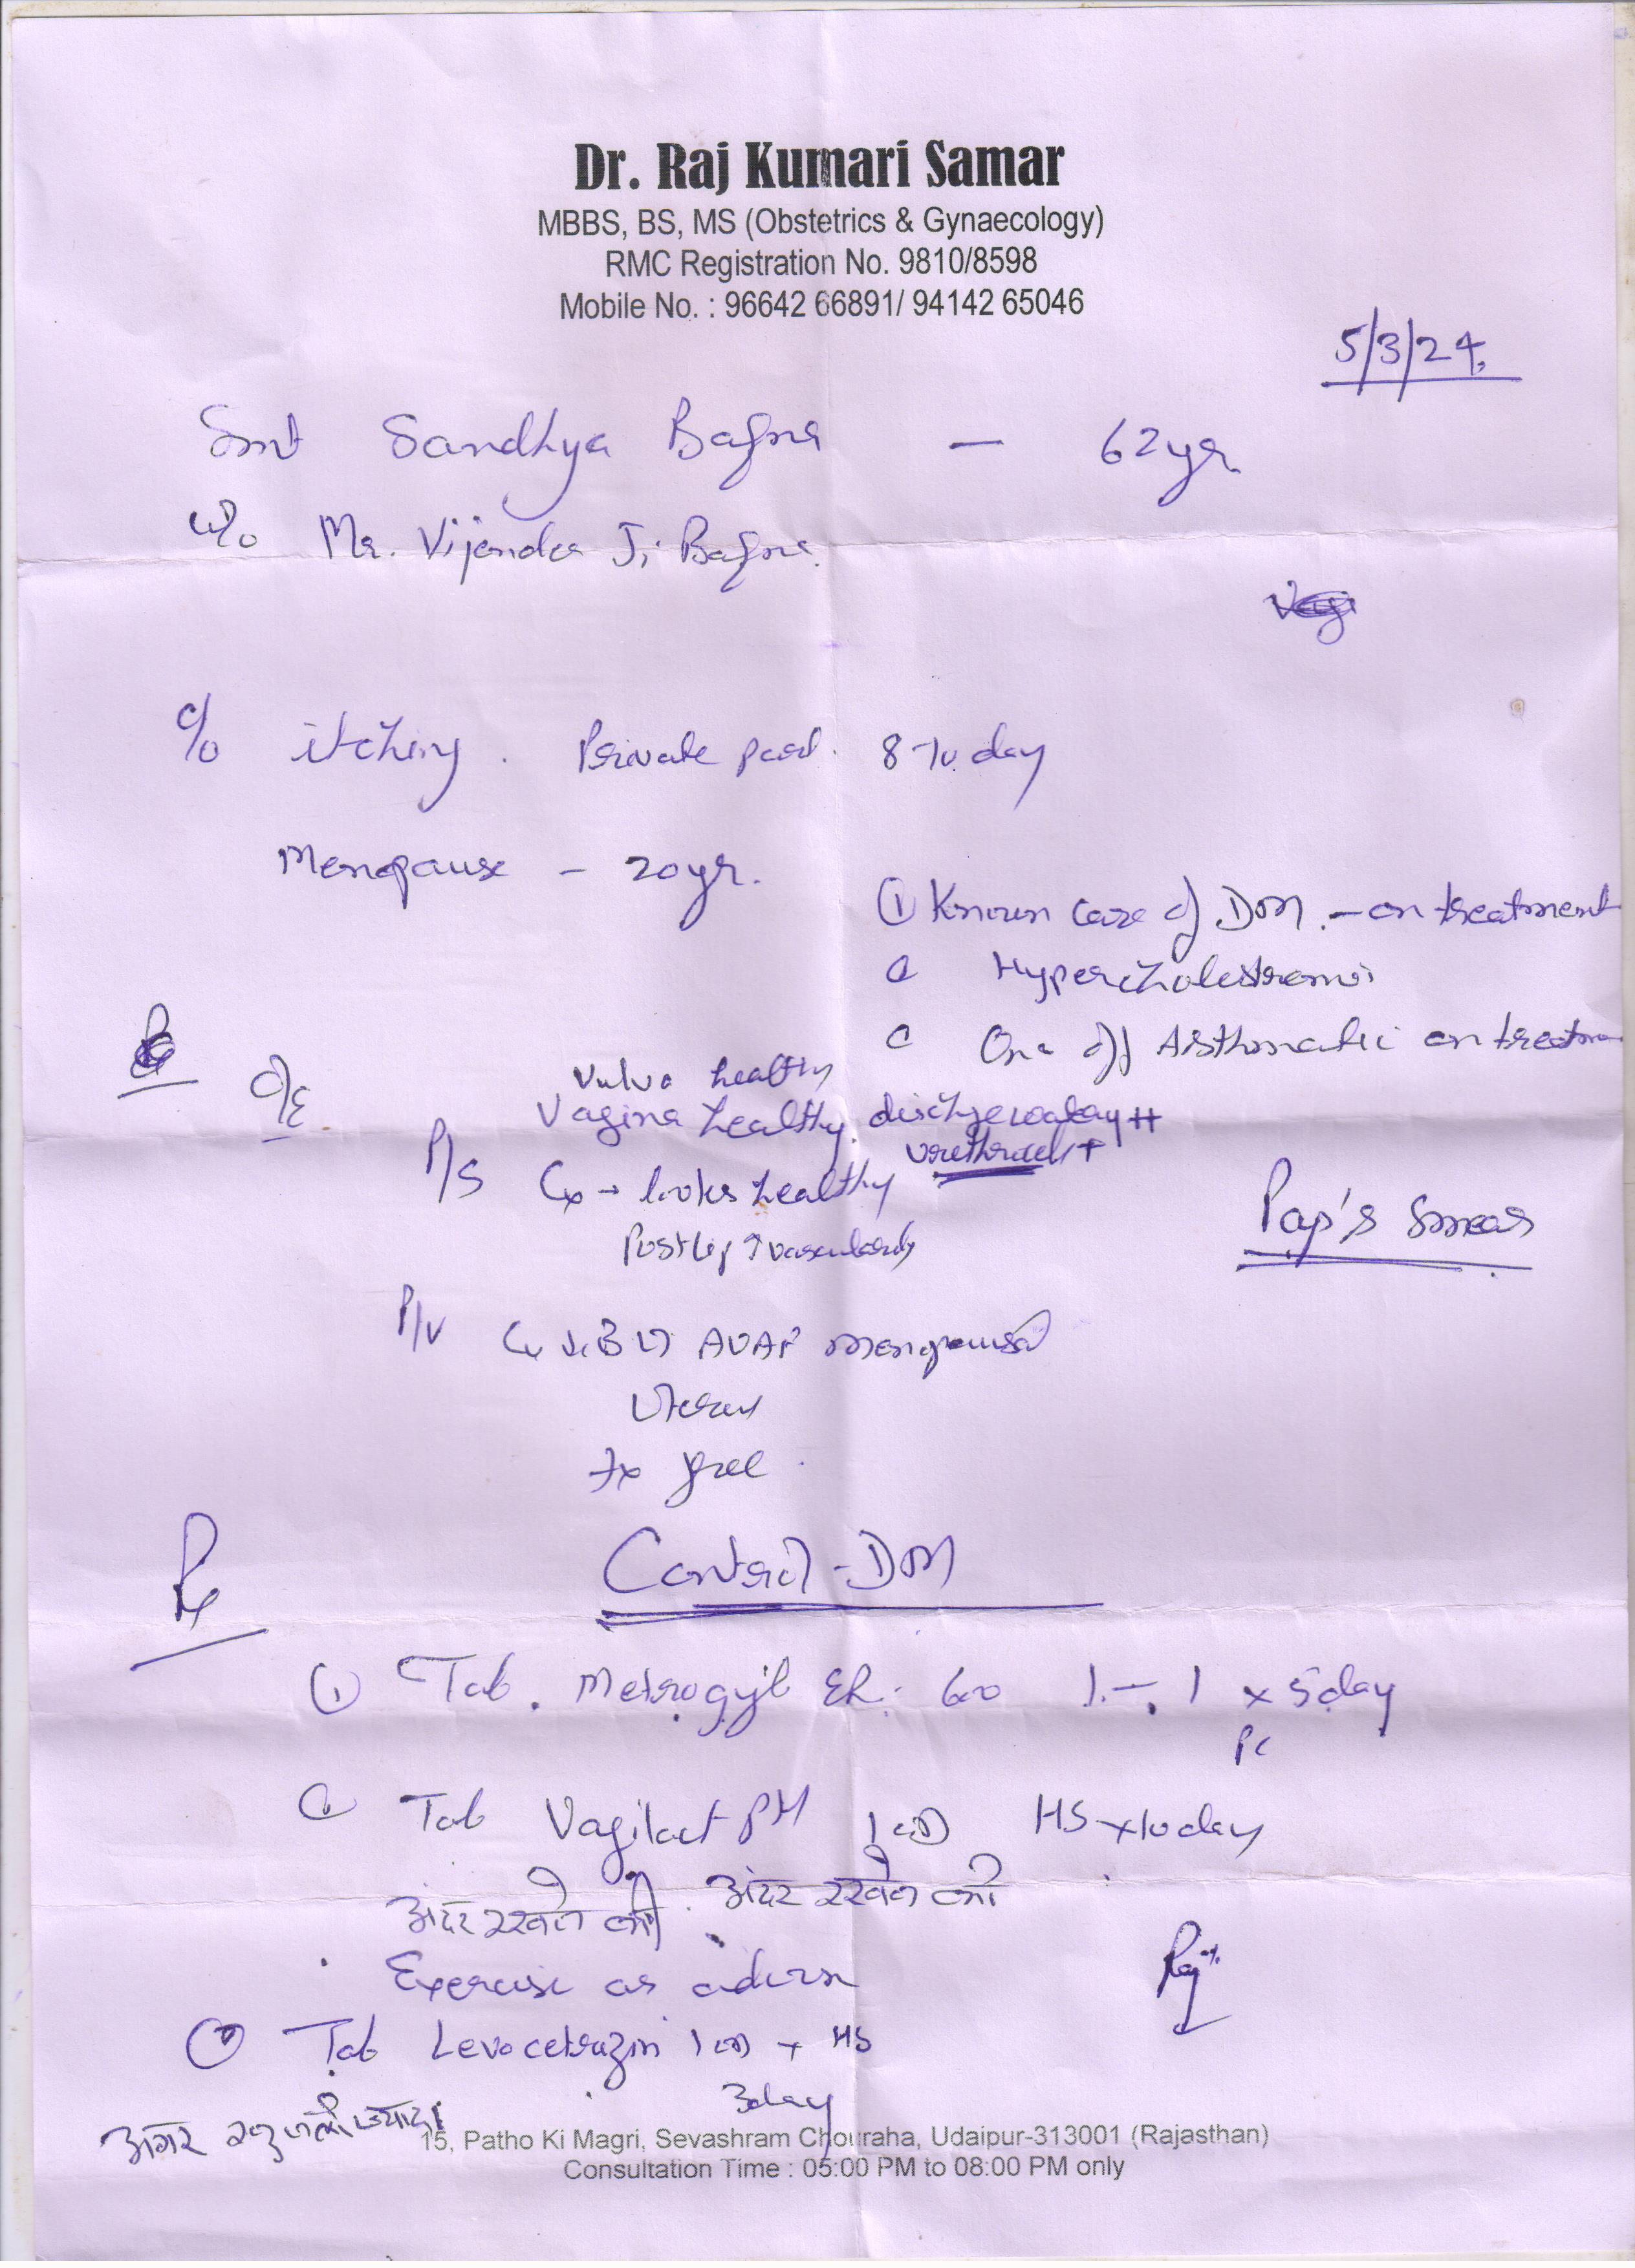 Dr. Raj Kumari Samar
MBBS, BS, MS (Obstetrics & Gynaecology)
RMC Registration No. 9810/8598
Mobile No. : 96642 66891/ 94142 65046
5/3/24.
Smt Sandhya Bafna — 62yr
W/o Mr. Vijendra Ji Bafna.
c/o itching. Private part. 8-10 day
Menopause – 20yr.
① Known case of DM. – on treatment
Hypercholestremi
On & off Asthmatic on treatm
O/E
Vulva healthy
Vagina healthy. watery ++
urethral +
P/S Cx → looks healthy
Post lip ↑ vascularity
Pap's Smear
P/V AVAF menopausal
Uterus
Fx free.
Rx Control - DM
① Tab. Metrogyl ER. 600 1 – 1 x 5 day
PC
Tab Vagilact PH 1 OD HS x 10 day
अंदर रखने की. अंदर रखने की
Exercise as advise
Raj
Tab Levocetrazin 1 OD + HS
3day
अगर खुजली ज्यादा
15, Patho Ki Magri, Sevashram Chouraha, Udaipur-313001 (Rajasthan)
Consultation Time : 05:00 PM to 08:00 PM only